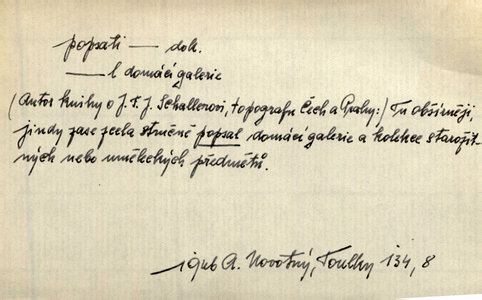 popsati — dok.
— l domácí galerie
(Autor knihy o J. F. J. Schallerovi, topografu Čech a Prahy:) Tu obšírněji,
jindy zase zcela stručně popsal domácí galerie a kolekce starožit-
ných nebo uměleckých předmětů.
A. Novotný, Toulky 134, 8